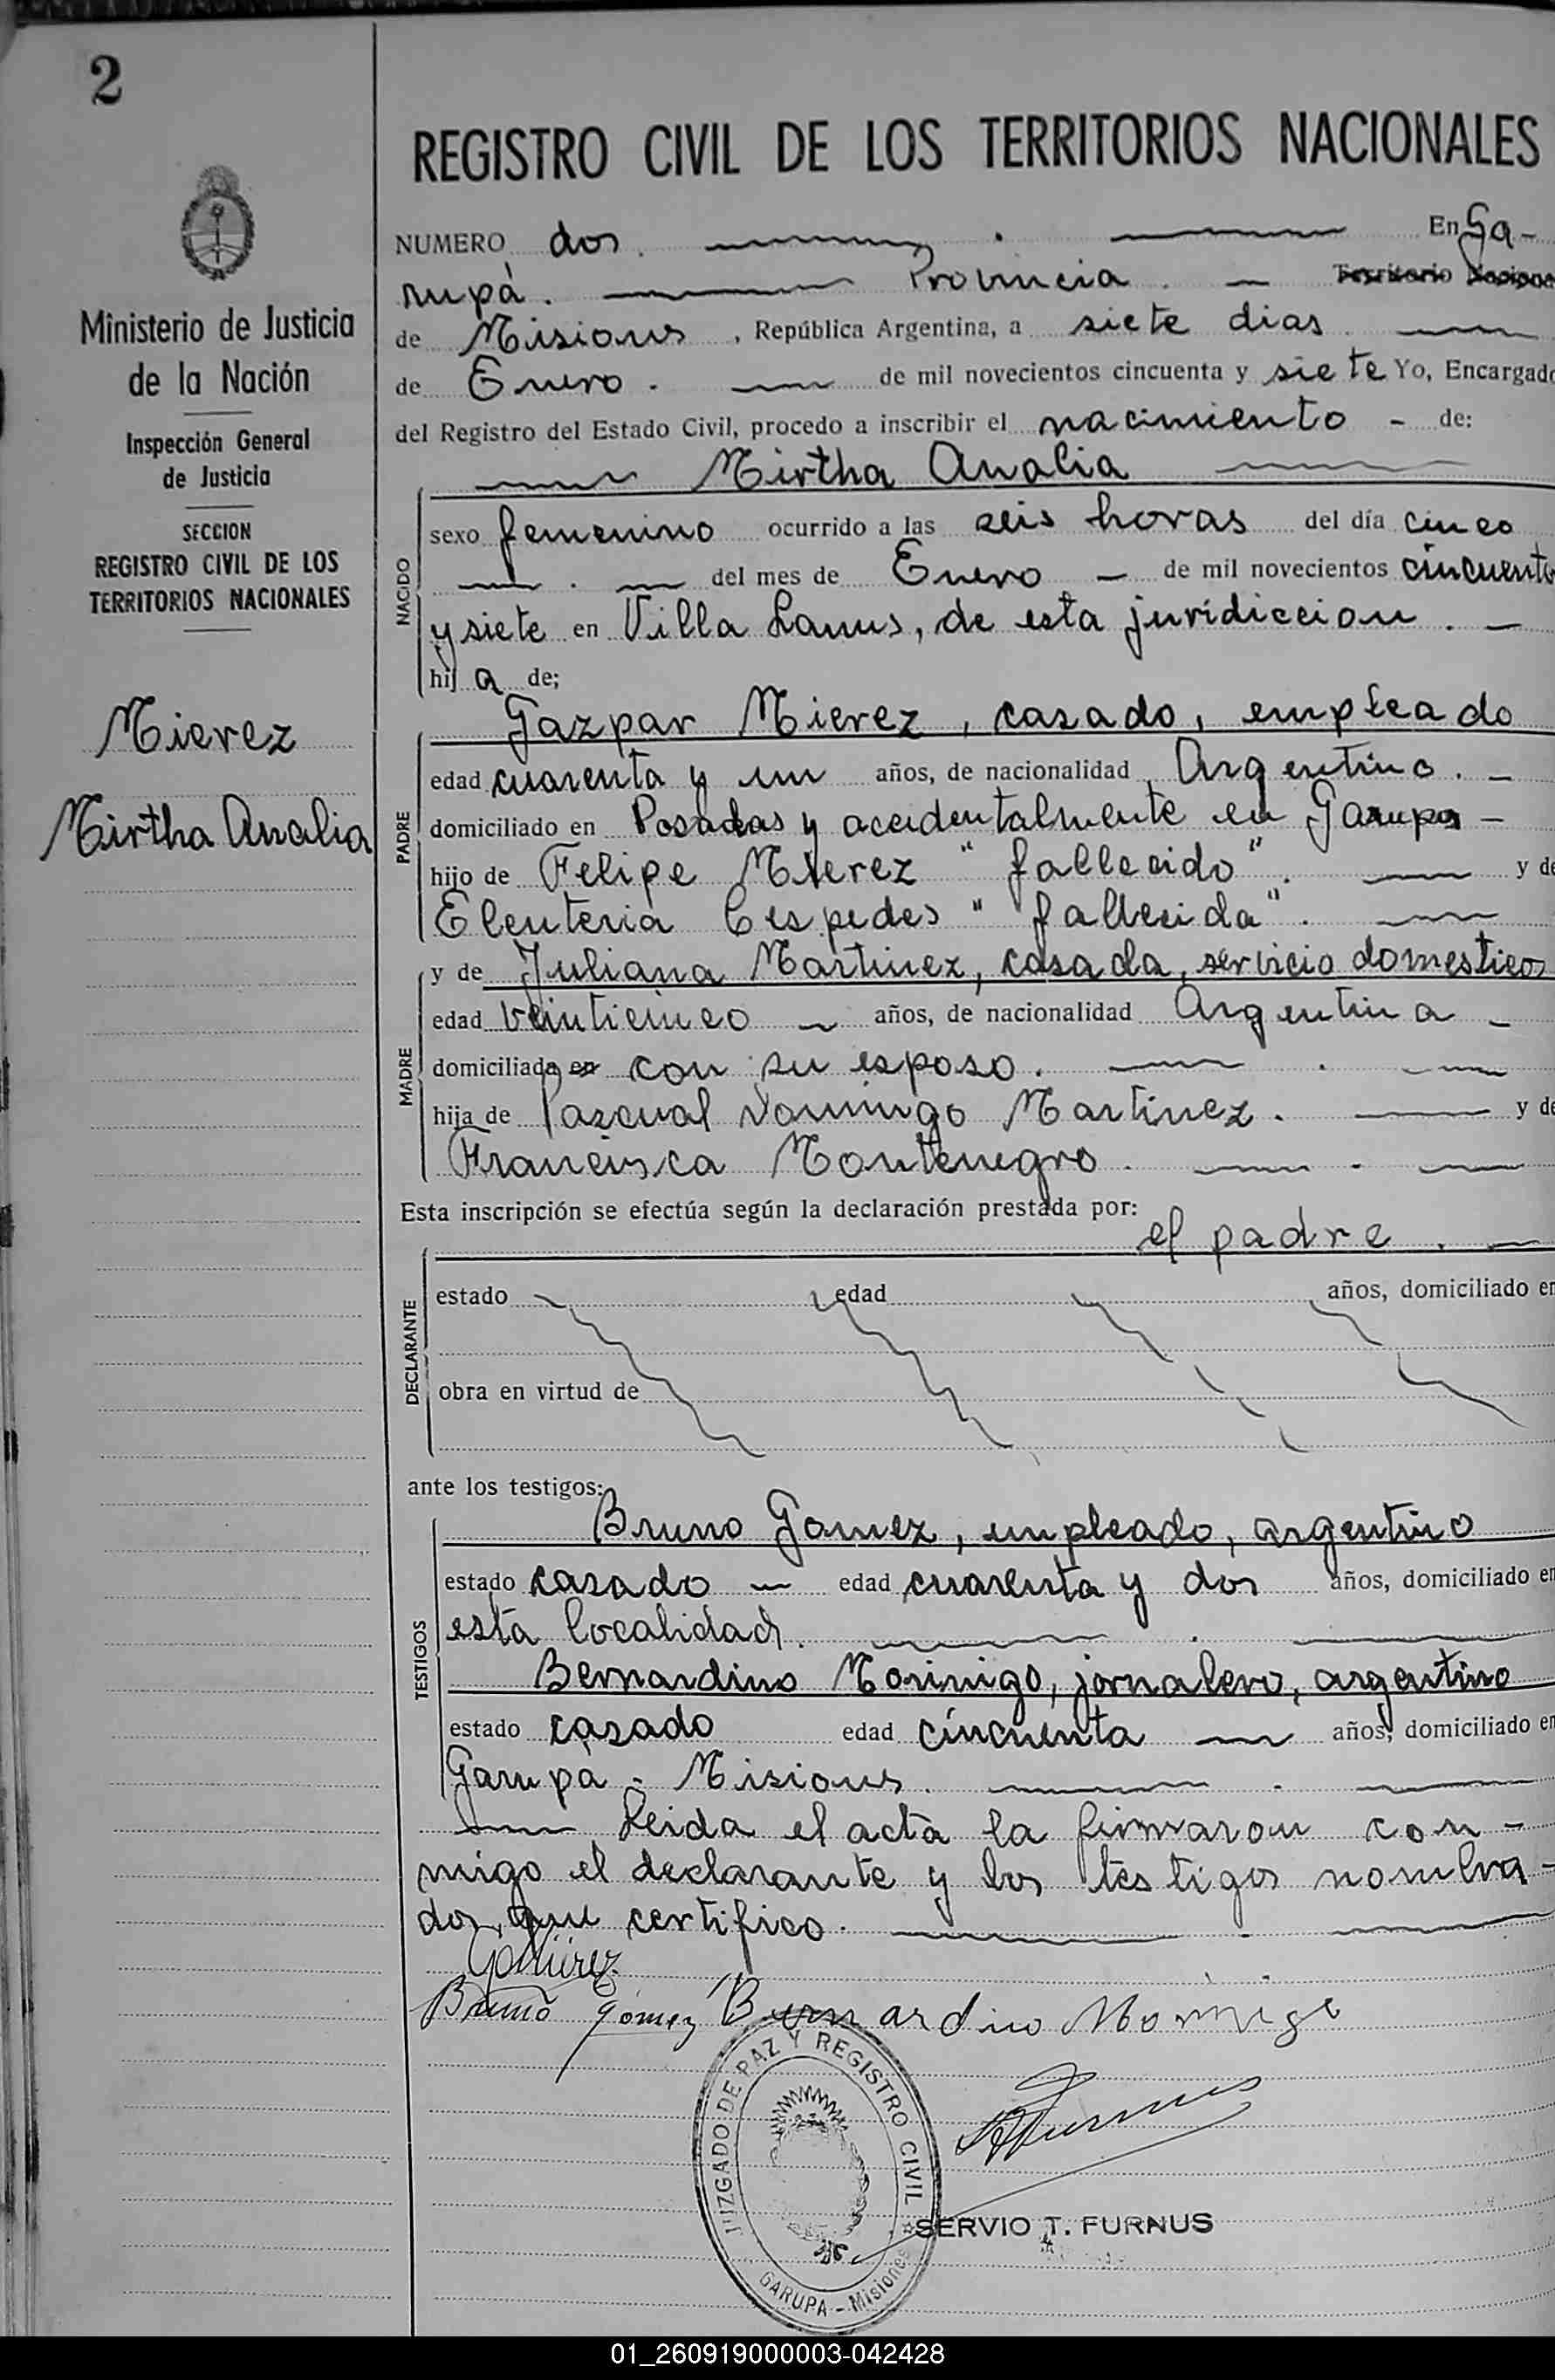 2
REGISTRO CIVIL DE LOS TERRITORIOS NACIONALES
Ministerio de Justicia
de la Nación
Inspección General
de Justicia
SECCION
REGISTRO CIVIL DE LOS
TERRITORIOS NACIONALES
Mierez
Mirtha Analia
NUMERO dos. En Ga-
rupá. Provincia Territorio Naciona
de Misiones, República Argentina, a siete dias
de Enero. de mil novecientos cincuenta y siete Yo, Encargado
del Registro del Estado Civil, procedo a inscribir el nacimiento - de:
Mirtha Analia
NACIDO
sexo femenino ocurrido a las seis horas del día cinco
del mes de Enero - de mil novecientos cincuenta
y siete en Villa Lanus, de esta juridiccion. -
hij a de;
Gazpar Mierez, casado, empleado
PADRE
edad cuarenta y un años, de nacionalidad Argentino. -
domiciliado en Posadas y accidentalmente en Garupa -
hijo de Felipe Mierez "fallecido". y de
Eleuteria Cespedes "fallecida".
y de Juliana Martinez, casada, servicio domestico
MADRE
edad veinticinco años, de nacionalidad Argentina -
domiciliada en con su esposo.
hija de Pascual Domingo Martinez. y de
Francisca Montenegro.
Esta inscripción se efectúa según la declaración prestada por:
el padre. -
DECLARANTE
estado edad años, domiciliado en
obra en virtud de
ante los testigos:
Bruno Gomez, empleado, argentino
TESTIGOS
estado casado edad cuarenta y dos años, domiciliado en
esta localidad.
Bernardino Morinigo, jornalero, argentino
estado casado edad cincuenta años, domiciliado en
Garupa - Misiones.
Leida el acta la firmaron con-
migo el declarante y los testigos nombra-
dos, que certifico.
Bruno Gómez Bernardino Morinigo
JUZGADO DE PAZ Y REGISTRO CIVIL
GARUPA - Misiones
SERVIO T. FURNUS
01_260919000003-042428